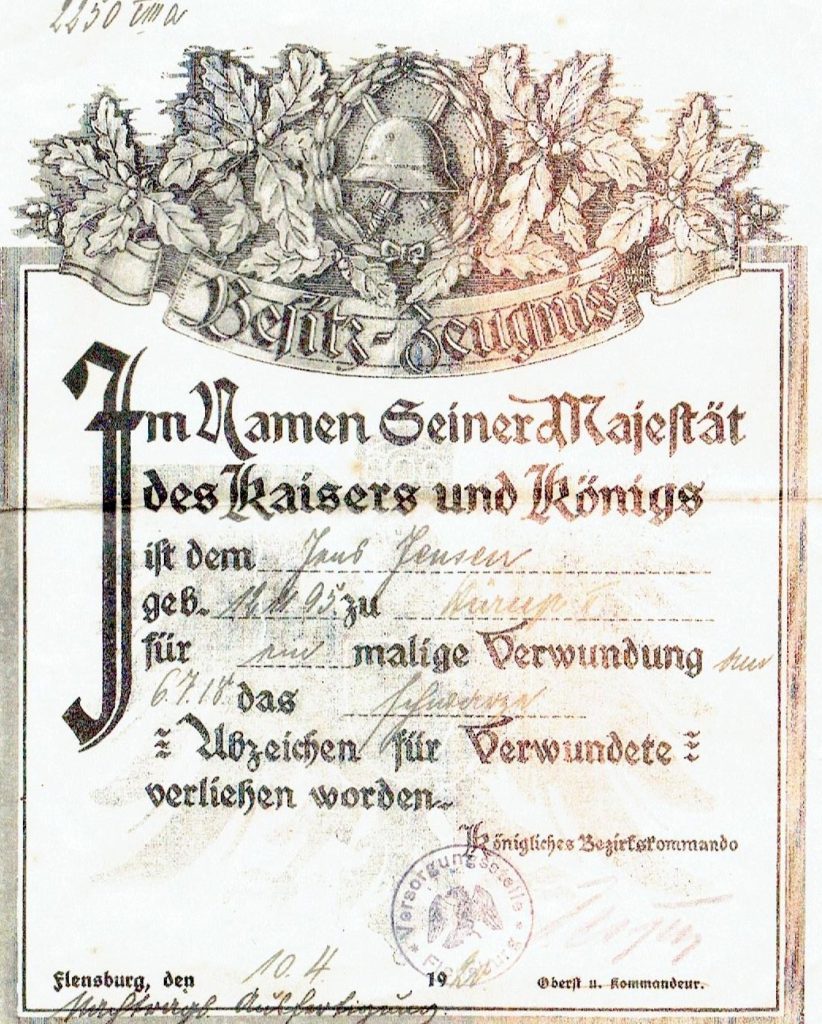 2250 VIII a
Besitz-Zeugnis
Im Namen Seiner Majestät
des Kaisers und Königs
ist dem Jens Jensen
geb. 95 zu
für ein malige Verwundung am
6.7.18 das schwarze
Abzeichen für Verwundete
verliehen worden.
Königliches Bezirkskommando
Versorgungsstelle
Flensburg
Flensburg, den 10.4 19
Oberst u. Kommandeur.
Nachtragl. Ausfertigung.